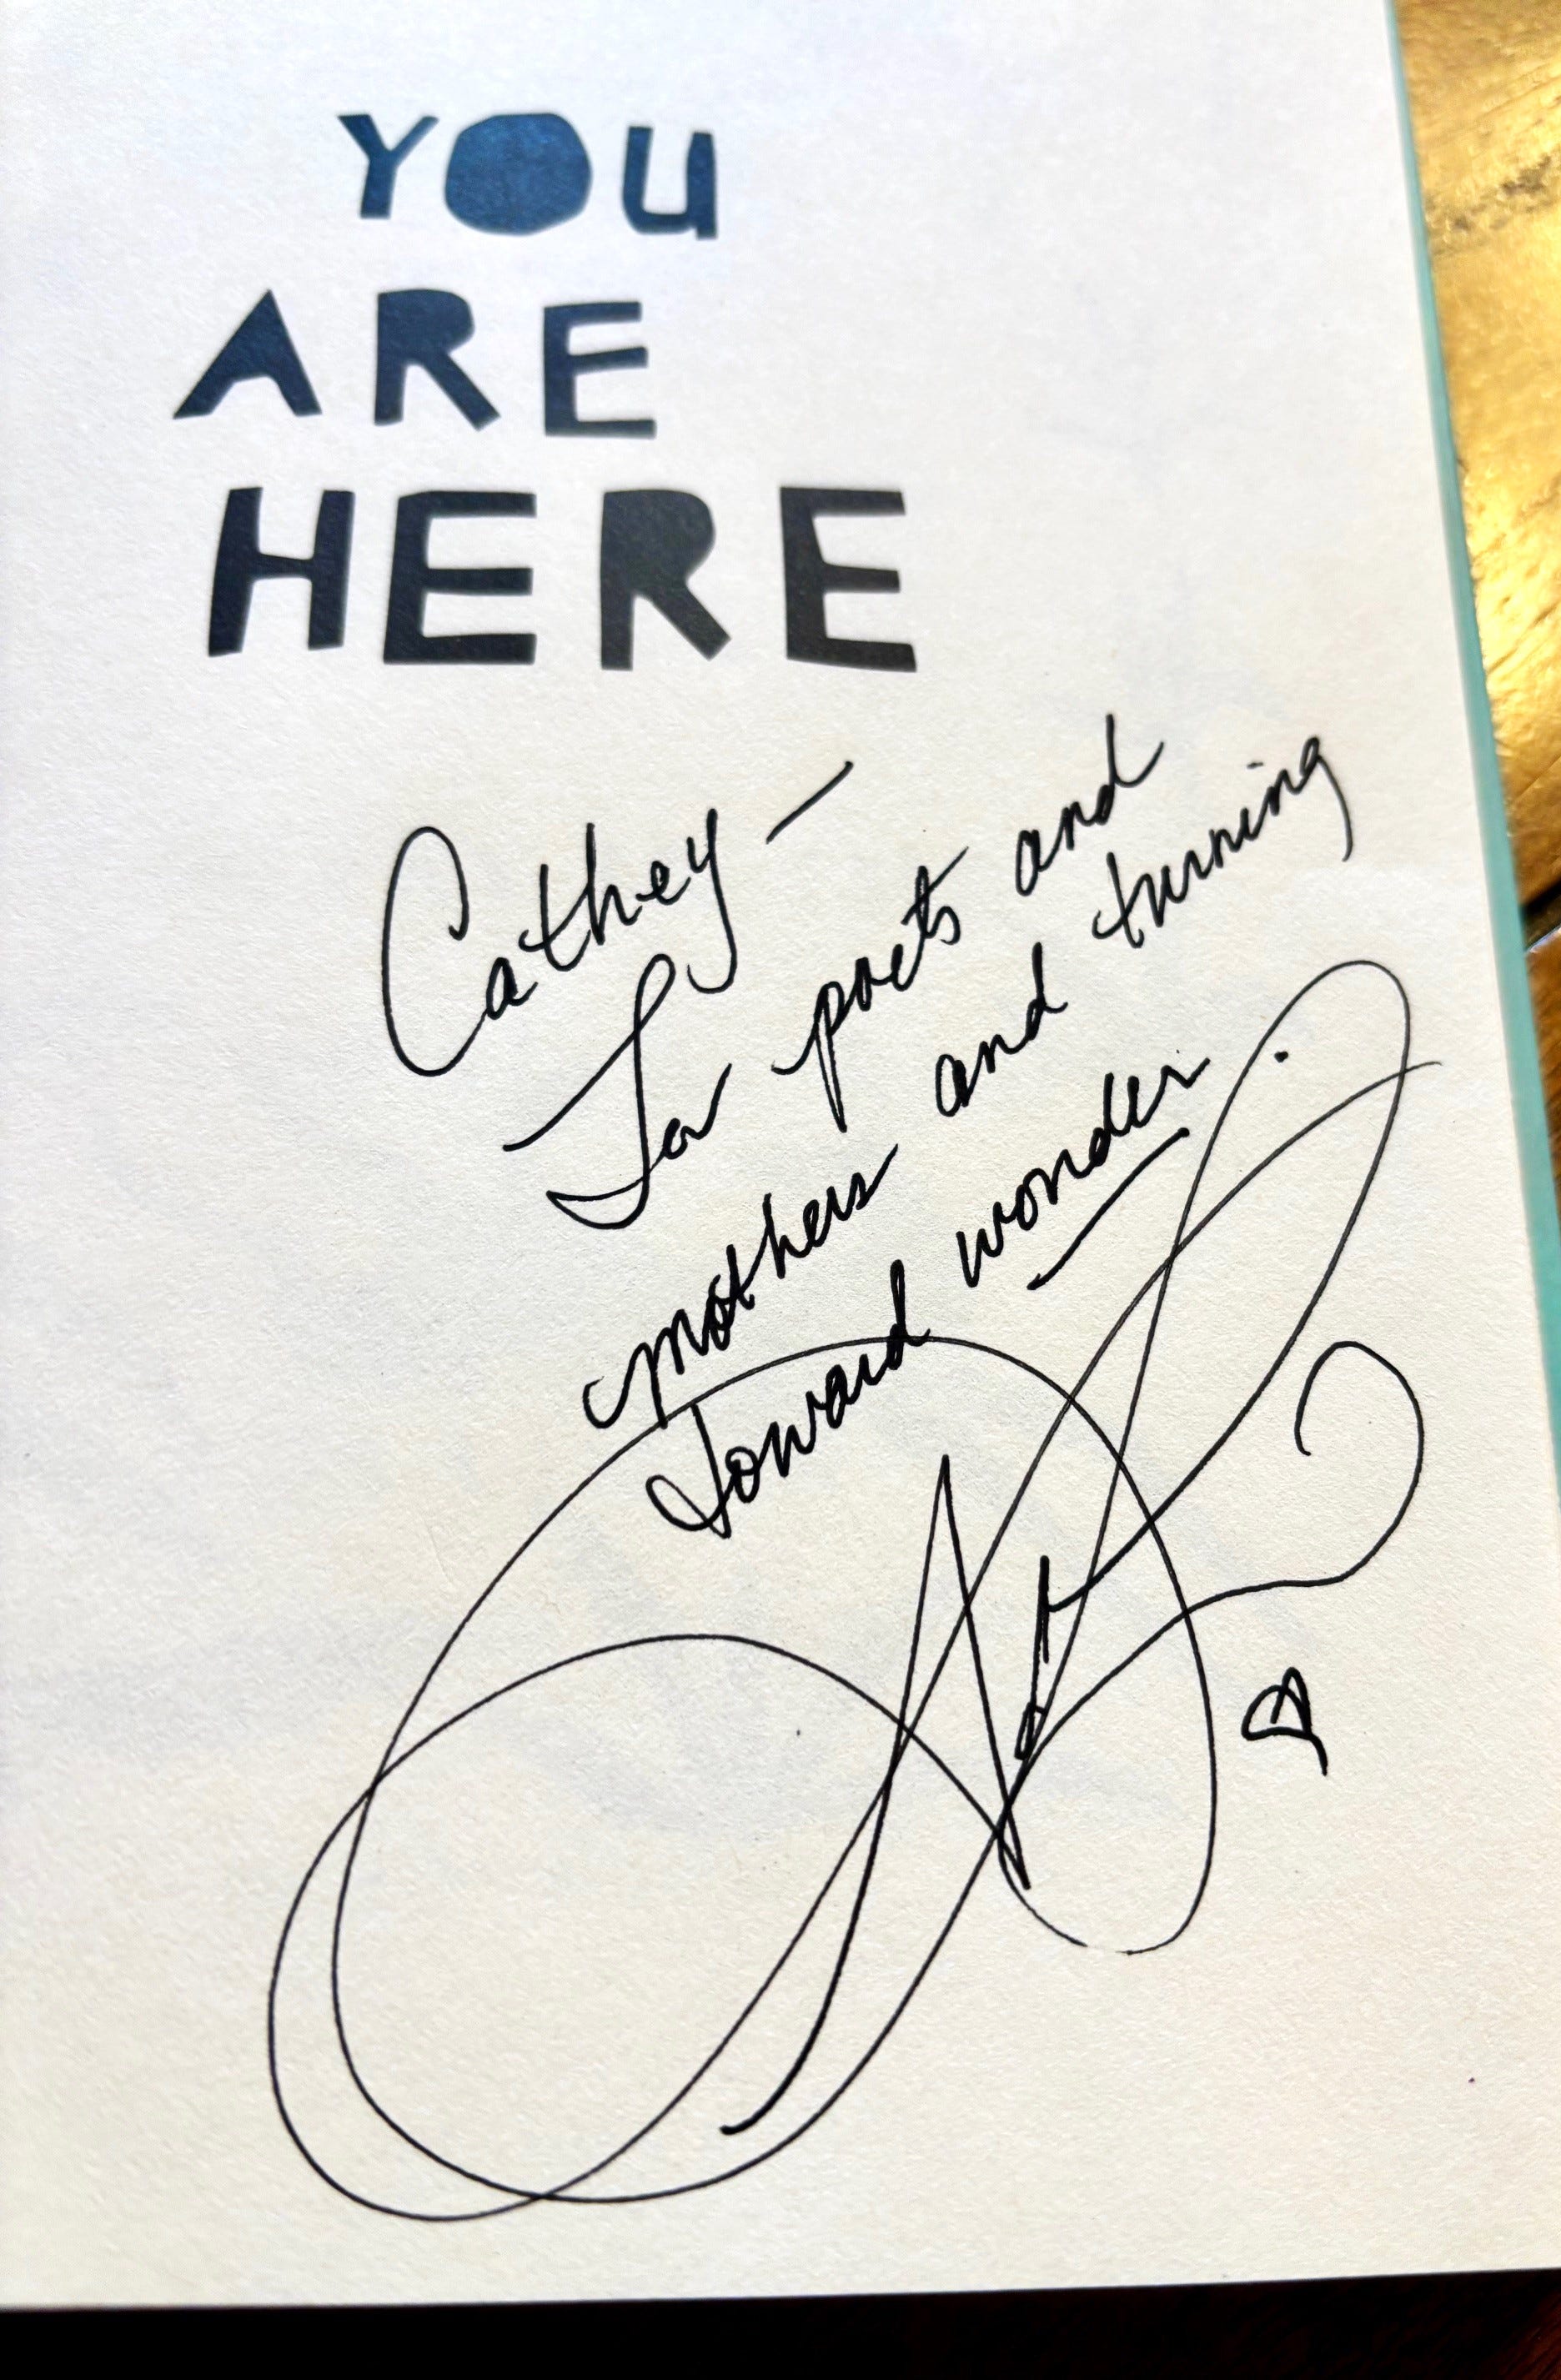 YOU
ARE
HERE
Cathey —
For poets and
mothers and turning
toward wonder.